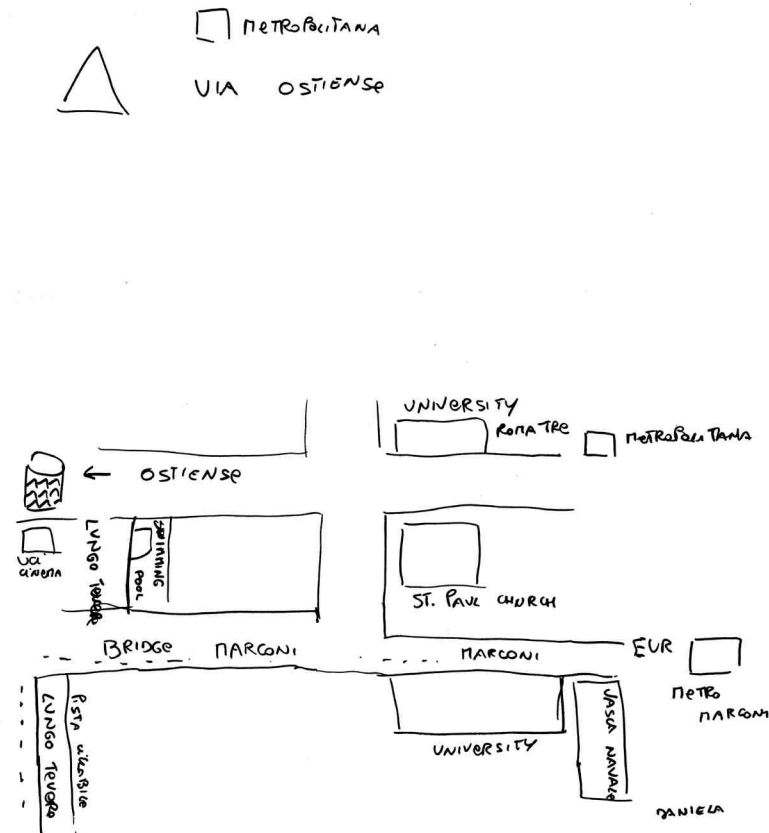 METROPOLITANA
VIA OSTIENSE
UNIVERSITY
ROMA TRE
METROPOLITANA
← OSTIENSE
LUNGO TEVERE
SWIMMING
POOL
UCI
CINEMA
ST. PAUL CHURCH
BRIDGE MARCONI
MARCONI
EUR
METRO
MARCONI
LUNGO TEVERE
PISTA
UNIVERSITY
VASCA NAVALE
DANIELA